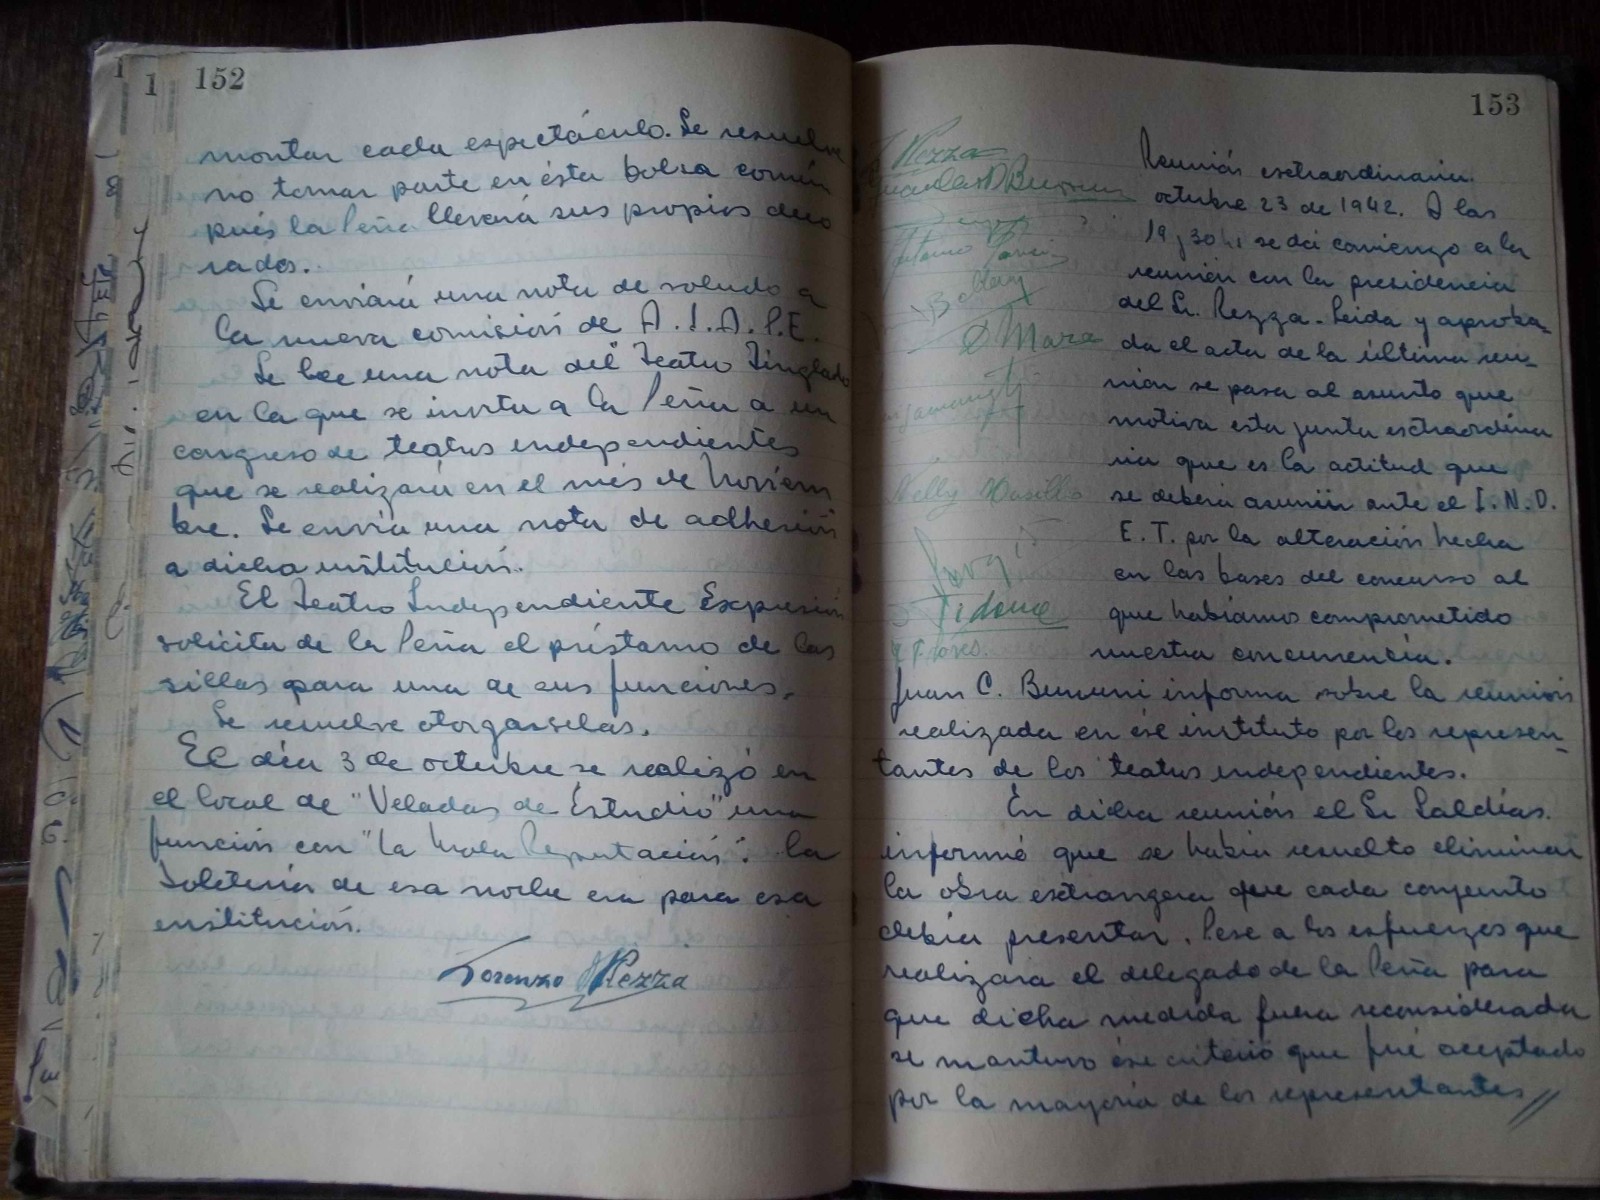 152
montar cada espectáculo. Se resuelve
no tomar parte en ésta bolsa común
pués la Peña llevará sus propios deco
rados.
Se enviará una nota de saludo a
la nueva comisión de A.I.A.P.E.
Se lee una nota del Teatro Tinglado
en la que se invita a la Peña a un
congreso de teatros independientes
que se realizará en el més de Noviem
bre. Se envia una nota de adhesión
a dicha institución.
El Teatro Independiente Expresión
solicita de la Peña el préstamo de las
sillas para una de sus funciones.
Se resuelve otorgasselas.
El día 3 de octubre se realizó en
el local de "Veladas de Estudio" una
función con "La Mala Reputación": la
boletería de esa noche era para esa
institución.
Lorenzo Rezza
153
Rezza
D. Mara
Nelly Vasillo
Jorge
Tidone
Reunión extraordinaria.
octubre 23 de 1942. A las
19,30 h se da comienzo a la
reunión con la presidencia
del Sr. Rezza. Leida y aproba-
da el acta de la última reu-
nión se pasa al asunto que
motiva esta junta extraordina
ria que es la actitud que
se deberá asumir ante el I.N.D.
E.T. por la alteración hecha
en las bases del concurso al
que habíamos comprometido
nuestra concurrencia.
Juan C. Bununi informa sobre la reunión
realizada en ése instituto por los represen-
tantes de los teatros independientes.
En dicha reunión el Sr Saldías.
informó que se había resuelto eliminar
la obra extrangera que cada conjunto
debía presentar. Pese a los esfuerzos que
realizara el delegado de la Peña para
que dicha medida fuera reconsiderada
se mantuvo ése criterio que fué aceptado
por la mayoría de los representantes //